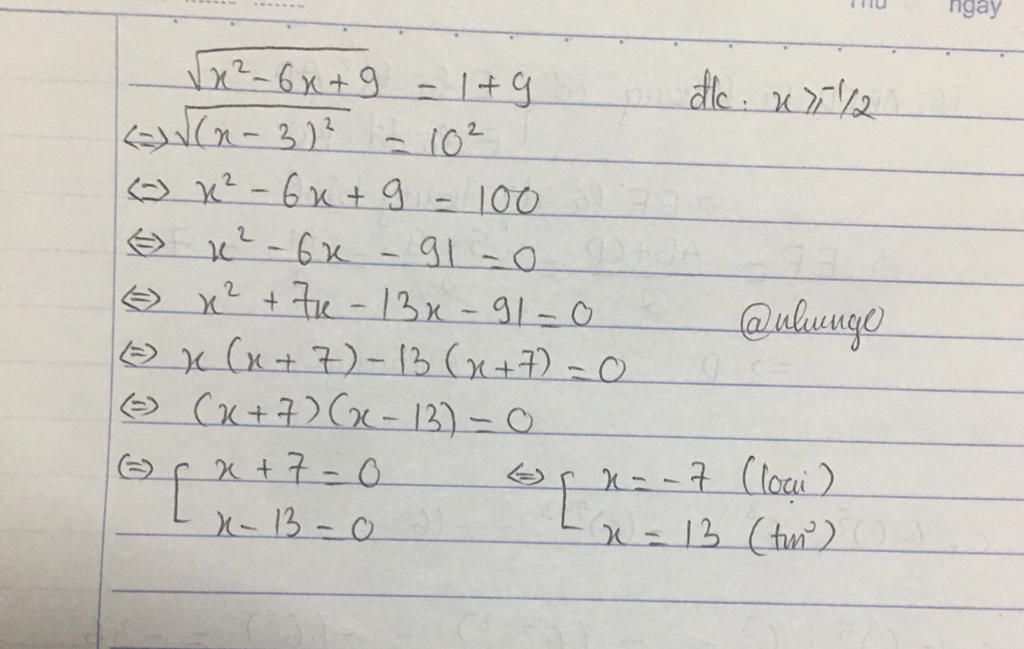 Thu ngày
√x² - 6x + 9 = 1 + 9 đk: x ≥ -1/2
<=> √(x - 3)² = 10²
<=> x² - 6x + 9 = 100
<=> x² - 6x - 91 = 0
<=> x² + 7x - 13x - 91 = 0
@nhung
<=> x (x + 7) - 13 (x + 7) = 0
<=> (x + 7)(x - 13) = 0
<=> [ x + 7 = 0 <=> [ x = -7 (loại)
x - 13 = 0 x = 13 (tm)